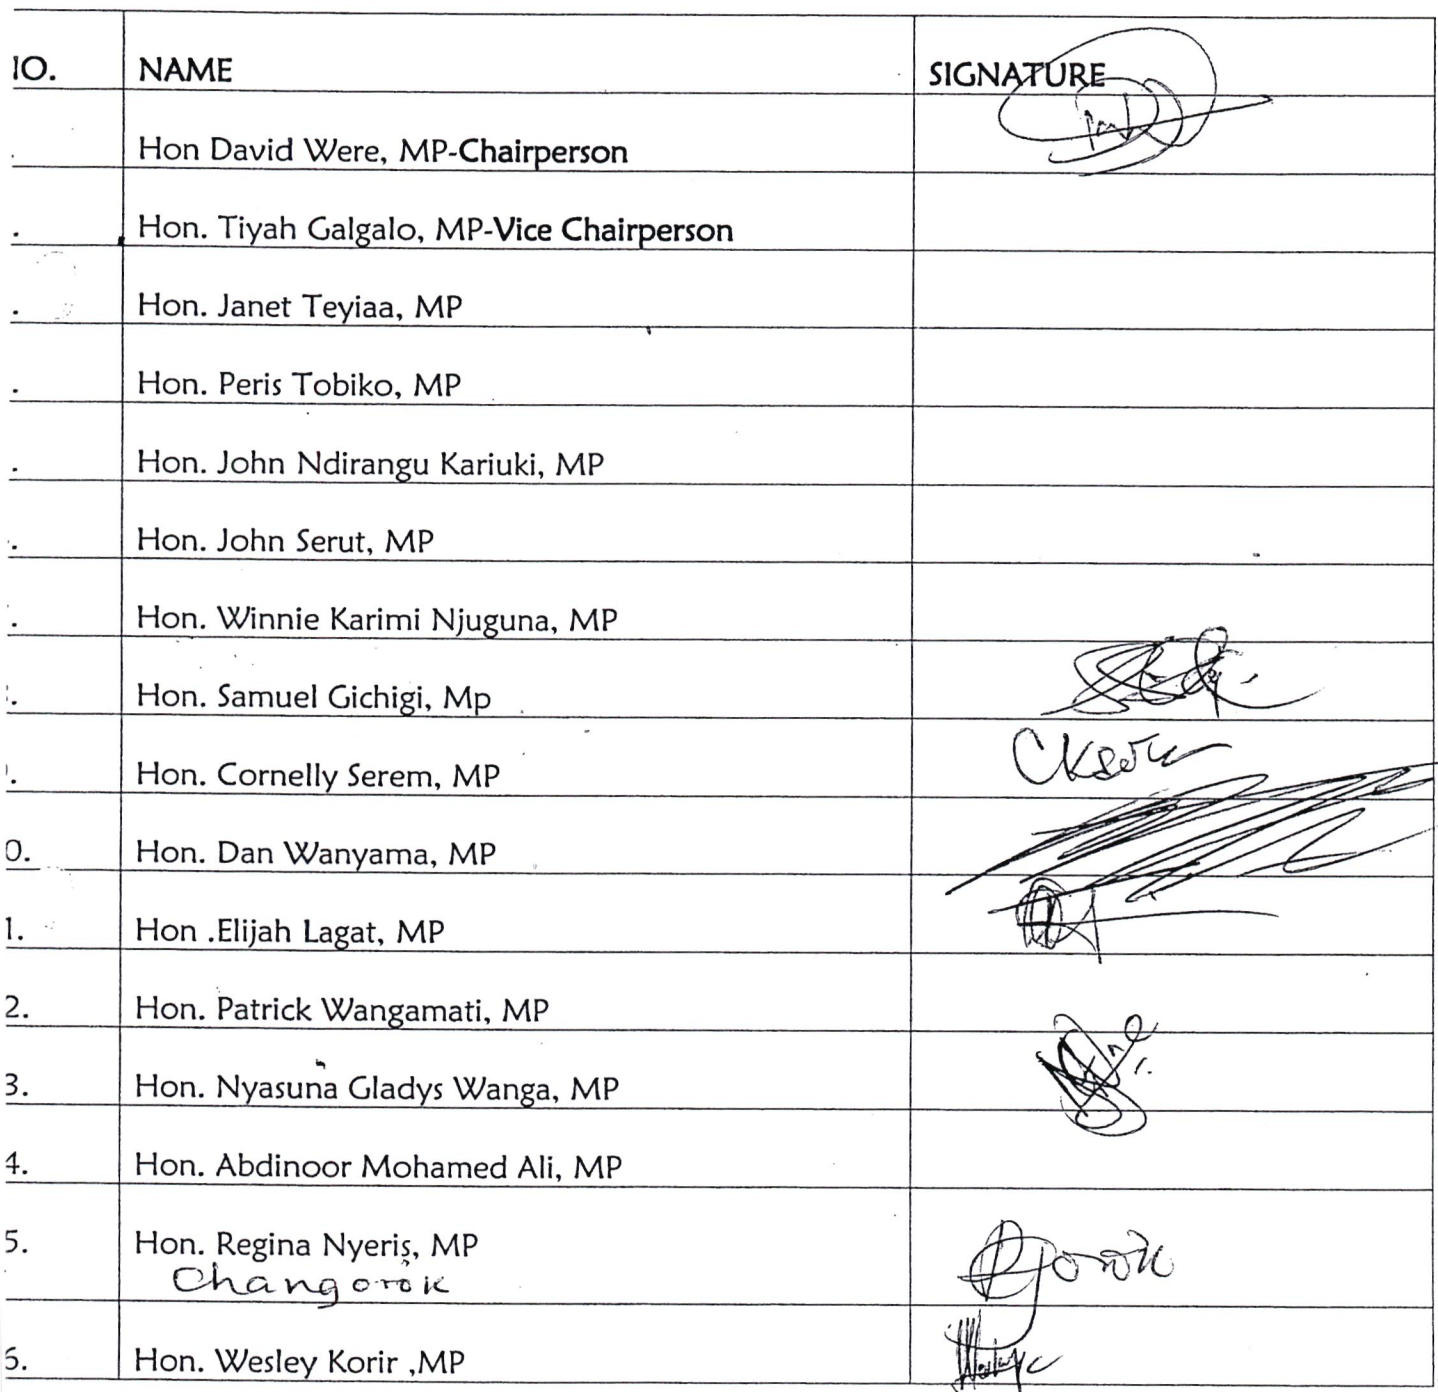 IO. NAME SIGNATURE
. Hon David Were, MP-Chairperson
. Hon. Tiyah Galgalo, MP-Vice Chairperson
. Hon. Janet Teyiaa, MP
. Hon. Peris Tobiko, MP
. Hon. John Ndirangu Kariuki, MP
. Hon. John Serut, MP
. Hon. Winnie Karimi Njuguna, MP
. Hon. Samuel Gichigi, Mp
. Hon. Cornelly Serem, MP
0. Hon. Dan Wanyama, MP
1. Hon .Elijah Lagat, MP
2. Hon. Patrick Wangamati, MP
3. Hon. Nyasuna Gladys Wanga, MP
4. Hon. Abdinoor Mohamed Ali, MP
5. Hon. Regina Nyeris, MP
Changorok
6. Hon. Wesley Korir ,MP